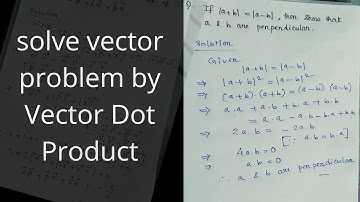 solve vector
problem by
Vector Dot
Product
Q. If |a+b| = |a-b|, then show that
a & b are perpendicular.
Solution
Given
|a+b| = |a-b|
⇒ |a+b|² = |a-b|²
⇒ (a+b).(a+b) = (a-b).(a-b)
⇒ a.a + a.b + b.a + b.b
= a.a - a.b - b.a + b.b
⇒ 2a.b = - 2a.b
[∵ a.b = b.a]
⇒ 4a.b = 0
⇒ a.b = 0
∴ a & b are perpendicular